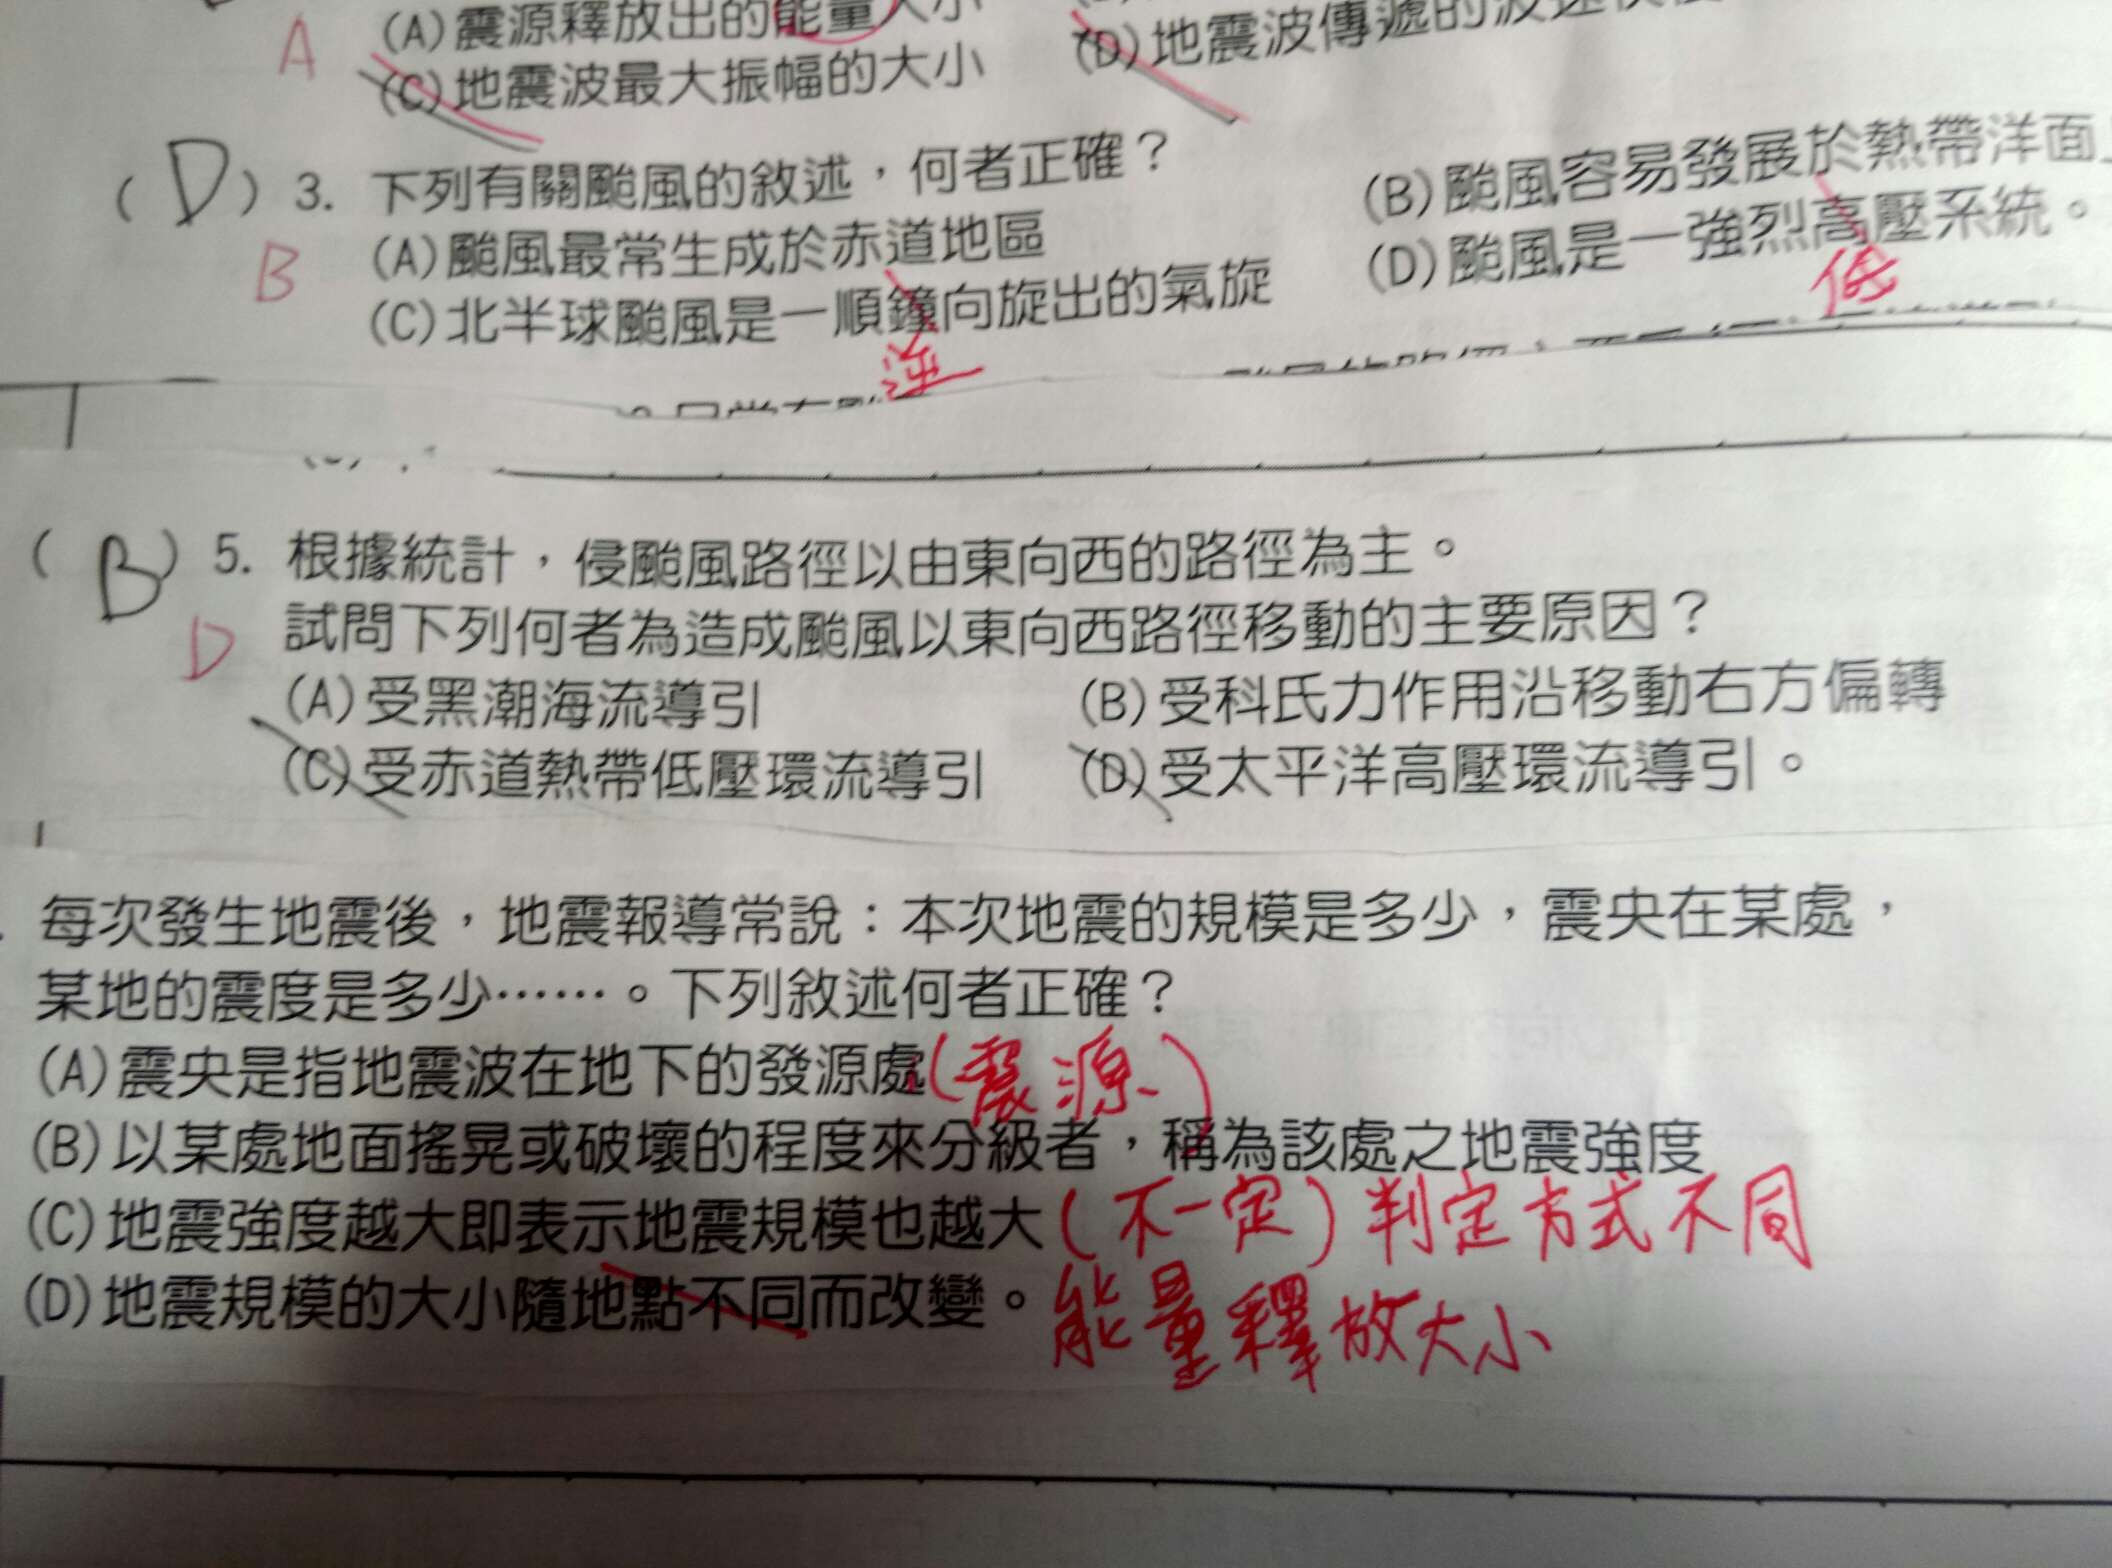 (A)震源釋放出的能量大小
A
(C)地震波最大振幅的大小 (D)地震波傳遞的波速快慢
( D ) 3. 下列有關颱風的敘述，何者正確？
B
(A)颱風最常生成於赤道地區 (B)颱風容易發展於熱帶洋面上
(C)北半球颱風是一順鐘向旋出的氣旋 (D)颱風是一強烈高壓系統。
逆 低
( B ) 5. 根據統計，侵颱風路徑以由東向西的路徑為主。
D 試問下列何者為造成颱風以東向西路徑移動的主要原因？
(A)受黑潮海流導引 (B)受科氏力作用沿移動右方偏轉
(C)受赤道熱帶低壓環流導引 (D)受太平洋高壓環流導引。
每次發生地震後，地震報導常說：本次地震的規模是多少，震央在某處，
某地的震度是多少⋯⋯。下列敘述何者正確？
(A)震央是指地震波在地下的發源處(震源)
(B)以某處地面搖晃或破壞的程度來分級者，稱為該處之地震強度
(C)地震強度越大即表示地震規模也越大(不一定)判定方式不同
(D)地震規模的大小隨地點不同而改變。能量釋放大小